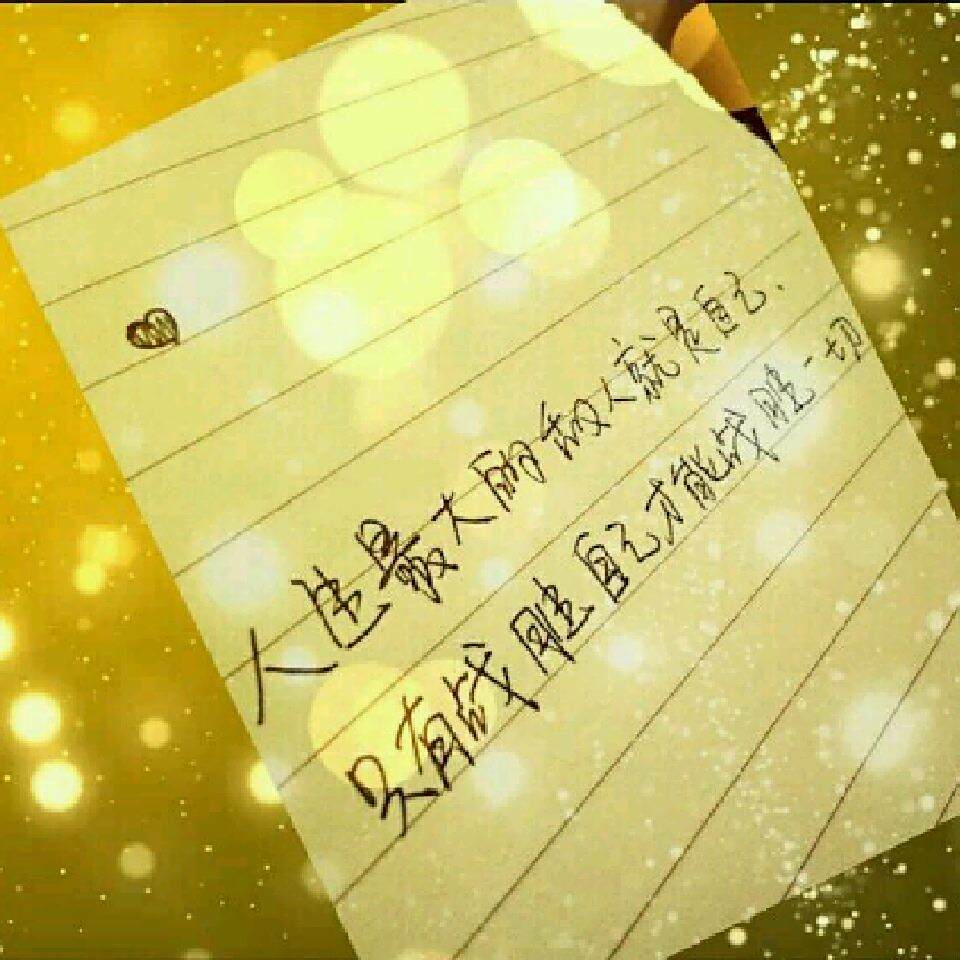 人最大的敌人就是自己.
只有战胜自己才能战胜一切